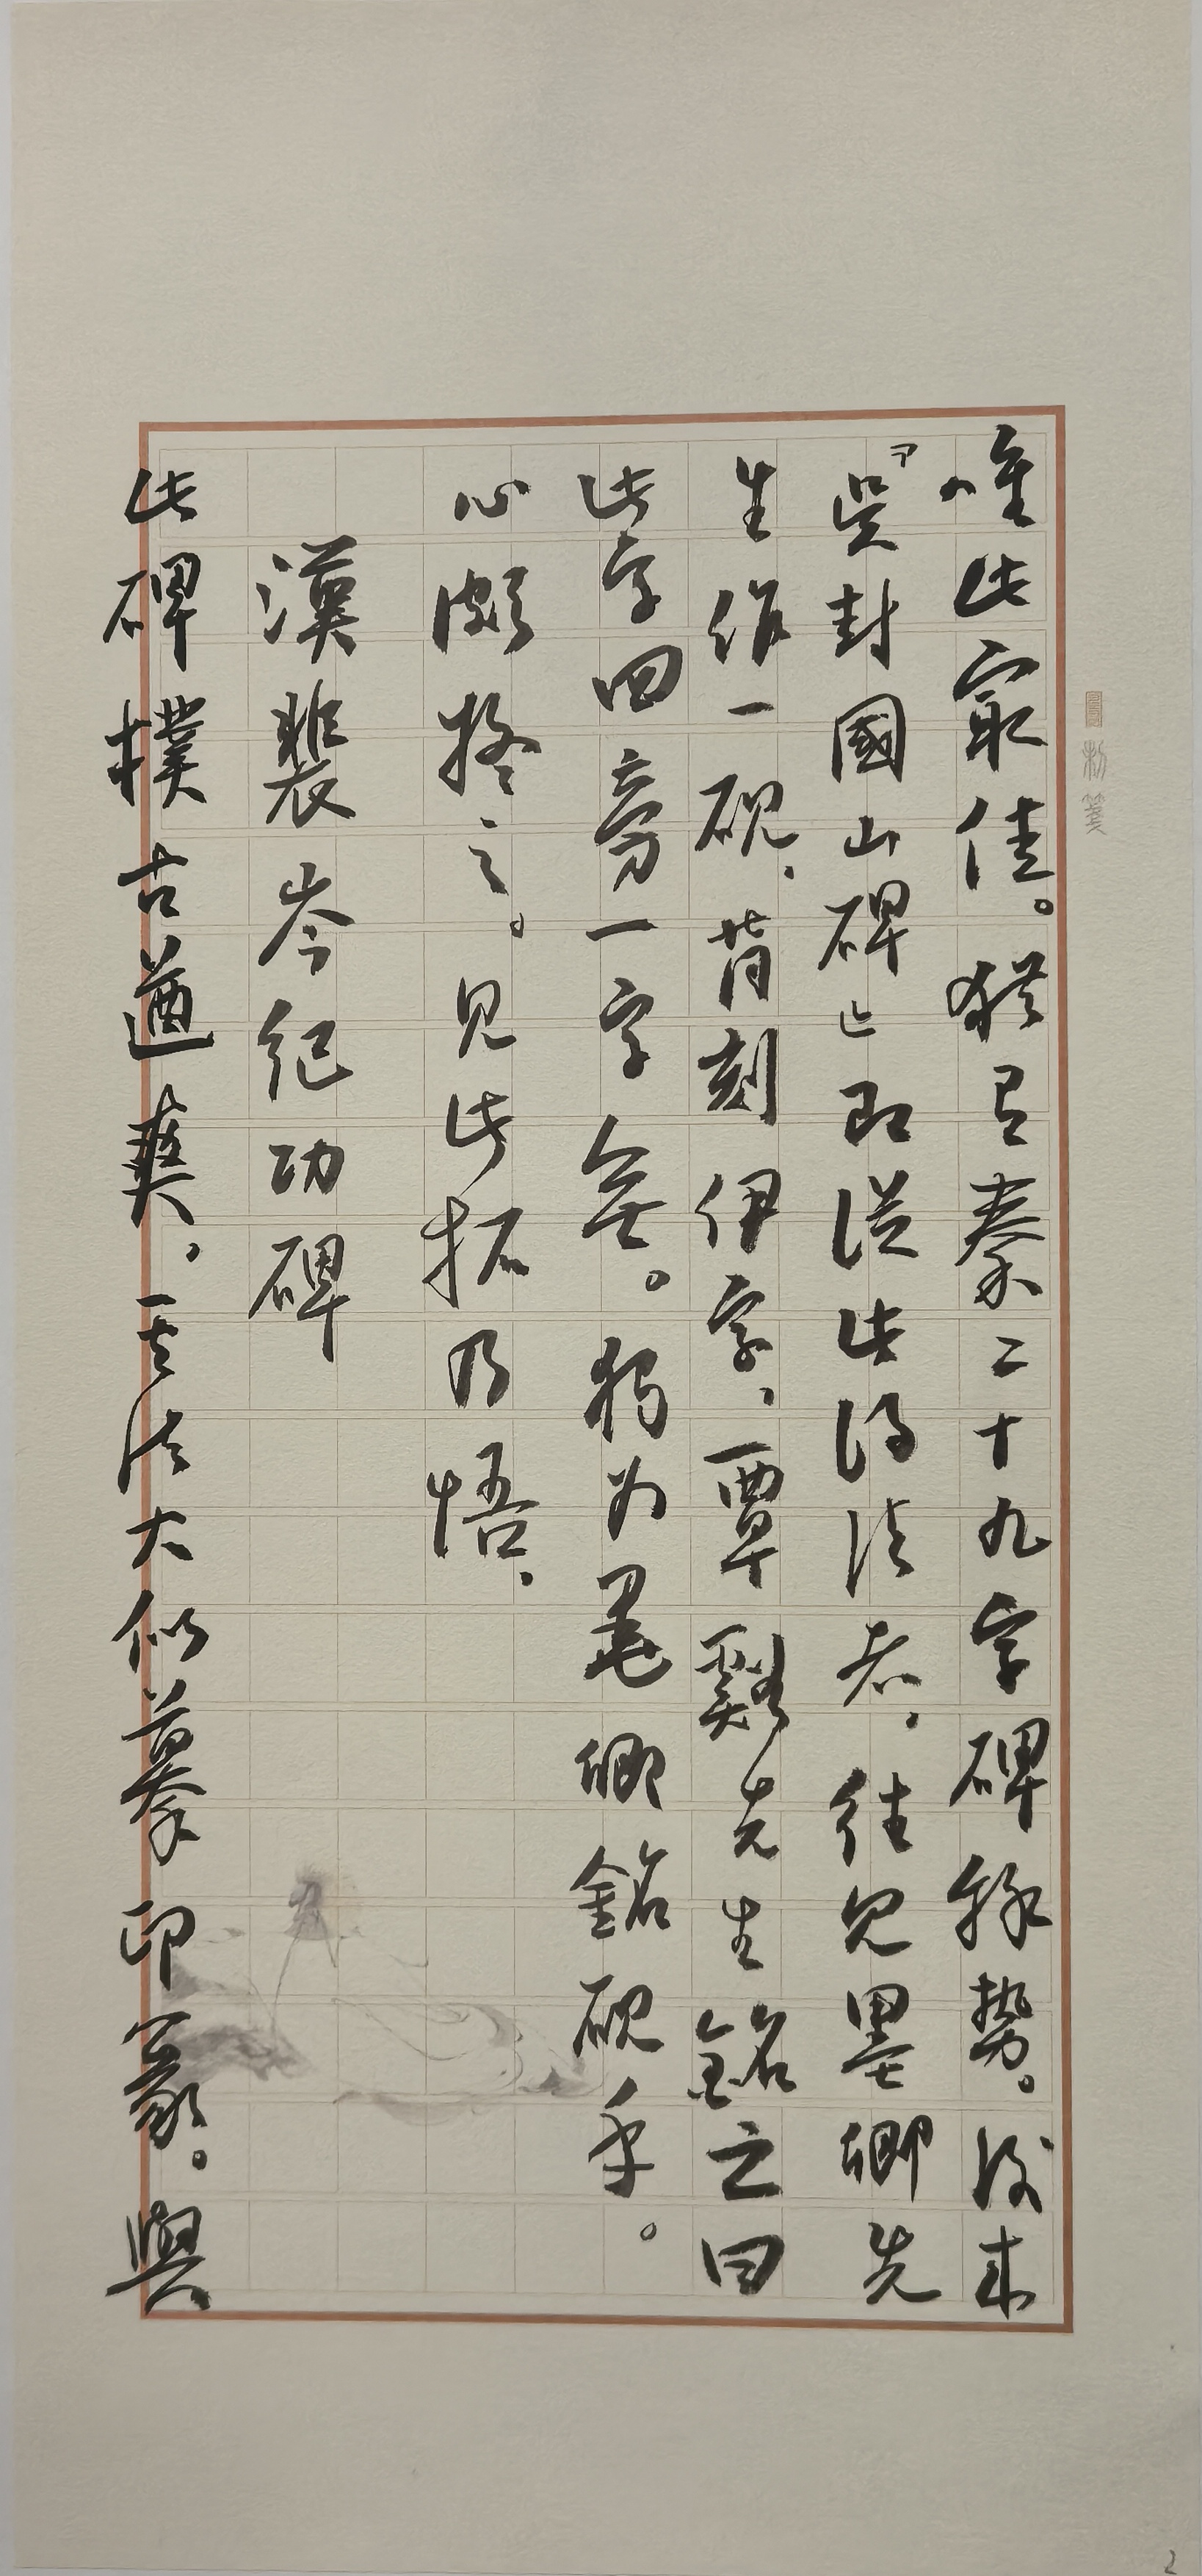 唯此最佳。猶有秦二十九字碑餘勢。後來
「吳封國山碑」即從此得法者，往見墨卿先
生作一硯，背刻伊字，覃谿先生銘之曰
此字四旁一字無。獨為墨卿銘硯乎。
心頗擬之。見此拓乃悟，
漢裴岑紀功碑
此碑樸古遒爽，其法大似摹印篆。與
2